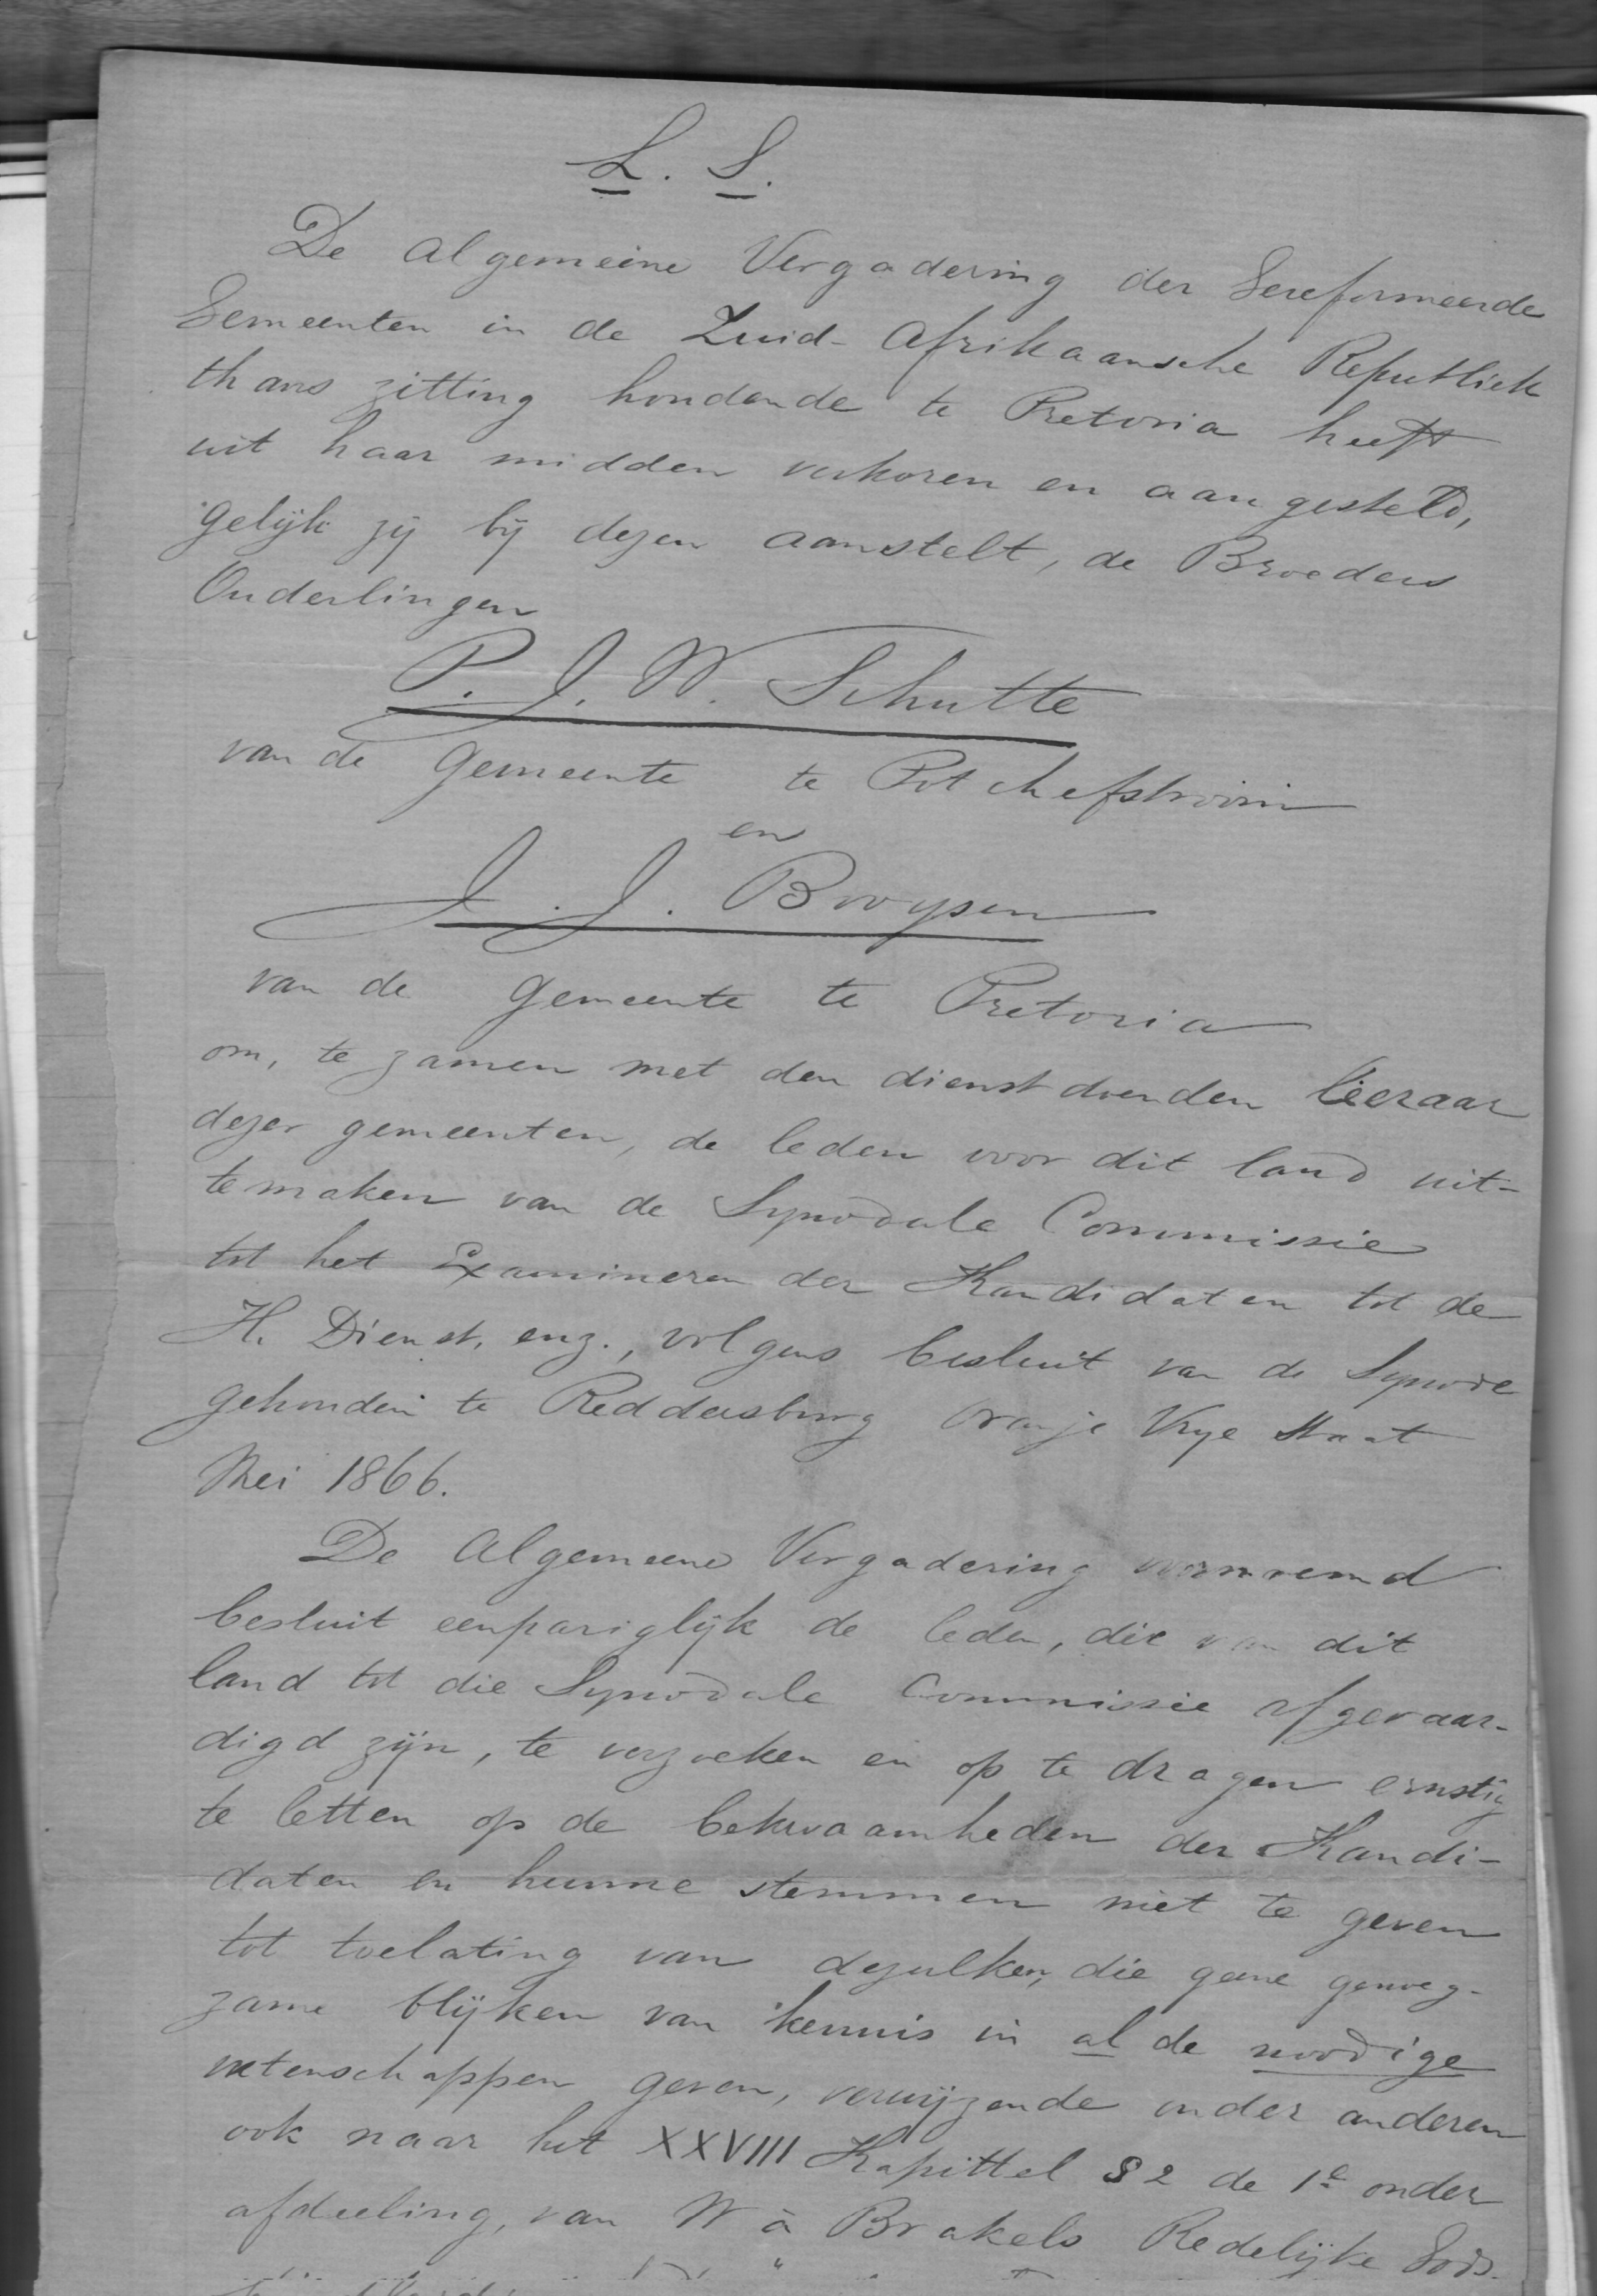 L. S.
De Algemeene Vergadering der Gereformeerde
Gemeenten in de Zuid-Afrikaansche Republiek
thans zitting houdende te Pretoria heeft
uit haar midden verkoren en aangesteld,
gelijk zij bij dezen aanstelt, de Broeders
Ouderlingen
P. J. W. Schutte
van de Gemeente te Potchefstroom
en
J. J. Booysen
van de Gemeente te Pretoria
om, te zamen met den dienstdoenden leeraar
dezer gemeenten, de leden voor dit land uit-
temaken van de Synodale Commissie
tot het Examineren der Kandidaten tot de
H. Dienst, enz., volgens besluit van de Synode
gehouden te Reddersburg Oranje Vrye Staat
Mei 1866.
De Algemeene Vergadering voornoemd
besluit eenpariglijk de leden, die van dit
land tot die Synodale Commissie afgevaar-
digd zijn, te verzoeken en op te dragen ernstig
te letten op de bekwaamheden der Kandi-
daten en hunne stemmen niet te geven
tot toelating van dezulken, die geene genoeg-
zame blijken van kennis in al de noodige
wetenschappen geven, verwijzende onder anderen
ook naar het XXVIII Kapittel § 2 de 1e onder
afdeeling, van W à Brakels Redelijke Gods-